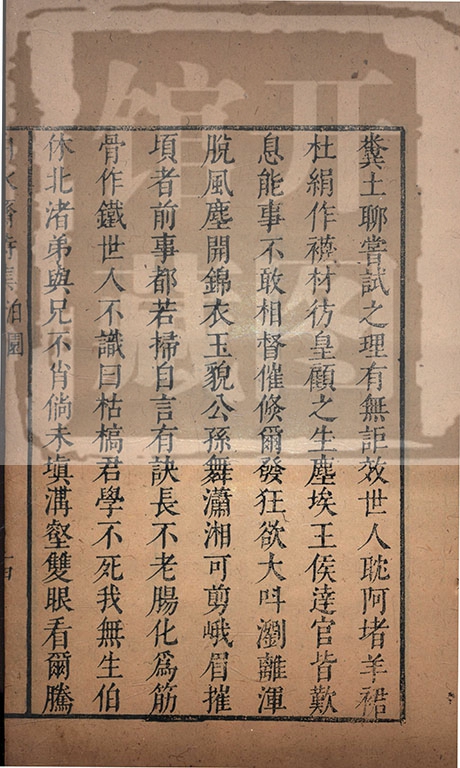 糞土聊嘗試之理有無詎效世人耽阿堵羊裙
杜絹作襪材彷皇顧之生塵埃王侯達官皆歎
息能事不敢相督催倏爾發狂欲大呌瀏離渾
脫風塵開錦衣玉貌公孫舞瀟湘可剪峨眉摧
頃者前事都若掃自言有訣長不老腸化爲筋
骨作鐵世人不識曰枯槁君學不死我無生伯
休北渚弟與兄不肖倘未塡溝壑雙眼看爾騰